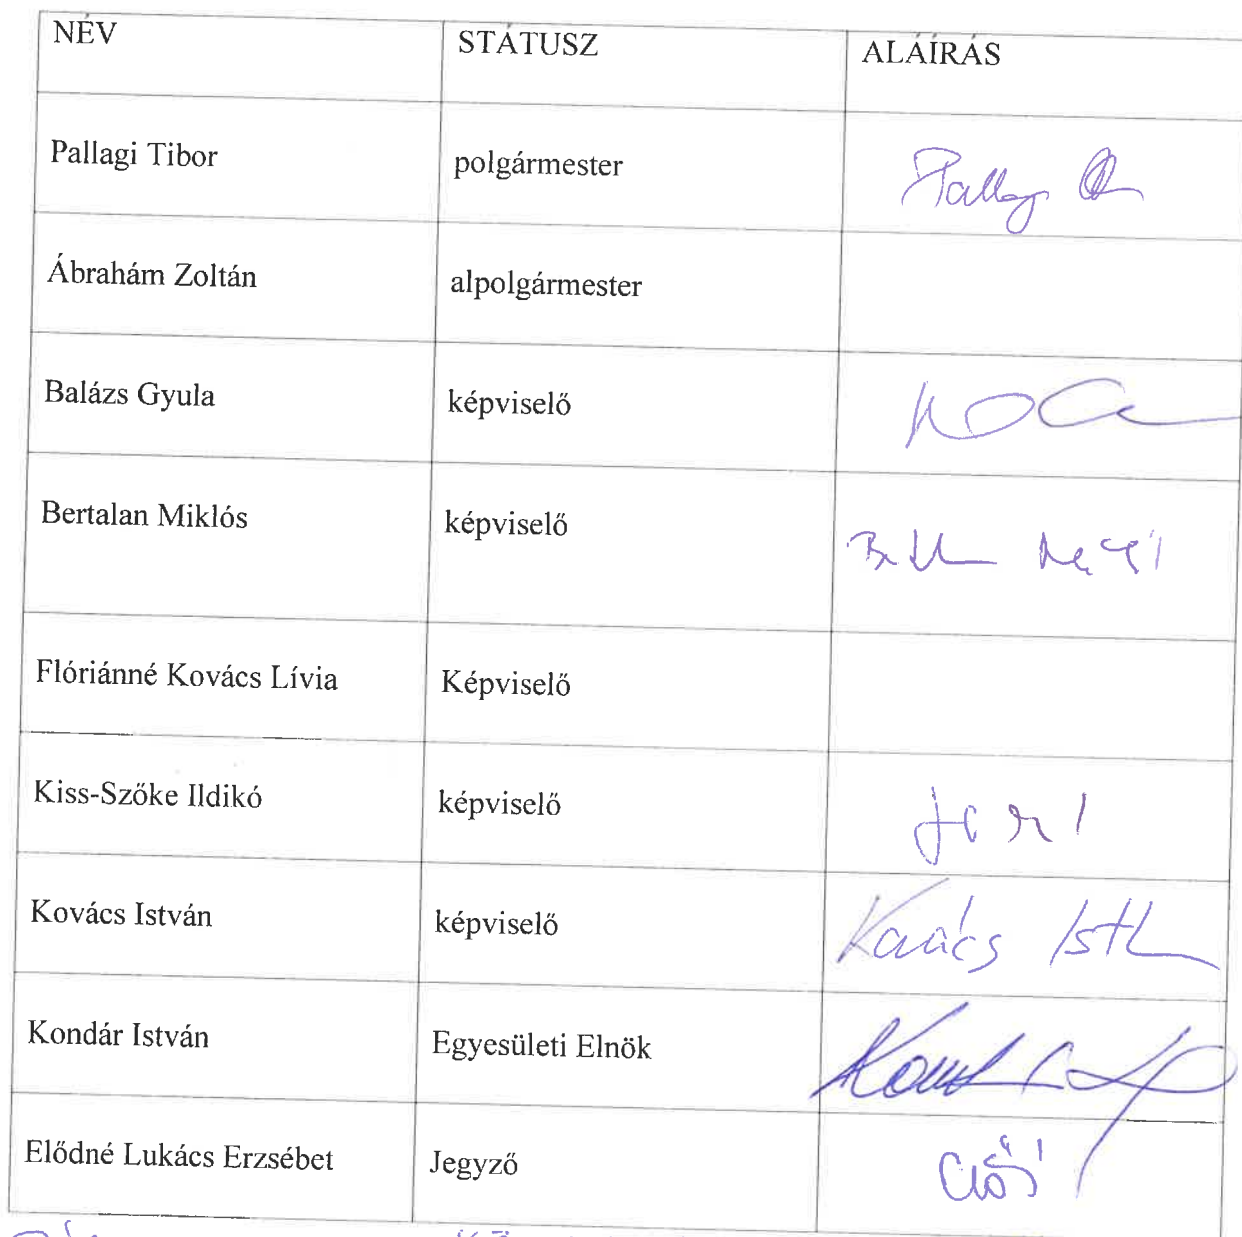 NÉV STÁTUSZ ALÁÍRÁS
Pallagi Tibor polgármester Pallagi
Ábrahám Zoltán alpolgármester
Balázs Gyula képviselő
Bertalan Miklós képviselő
Flóriánné Kovács Lívia Képviselő
Kiss-Szőke Ildikó képviselő
Kovács István képviselő Kovács
Kondár István Egyesületi Elnök
Elődné Lukács Erzsébet Jegyző